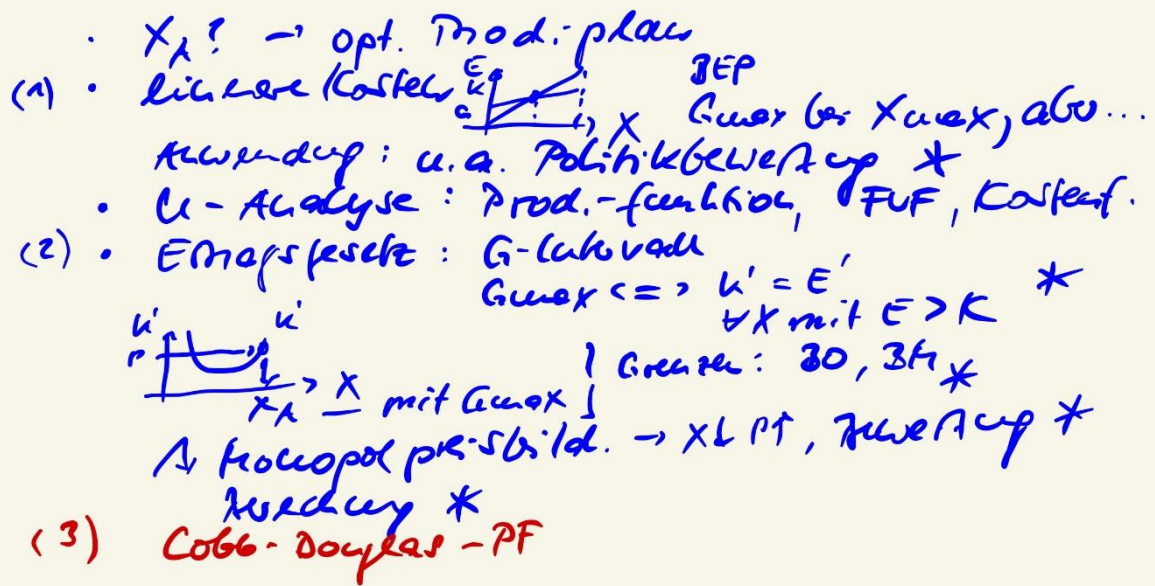 · X_A? → opt. Prod.-plan
(1) · lineare Kosten E K a X BEP
Gmax bei Xmax, also...
Anwendung: u.a. Politikbewertung *
· U-Analyse: Prod.-funktion, FVF, Kostenf.
(2) · Ertragsgesetz: G-
Gmax <=> K' = E' *
∀X mit E > K
K' P K' X_A X mit Gmax } Grenzen: BO, BM *
Monopolpreisbild. → X↓ P↑, *
*
(3) Cobb-Douglas-PF